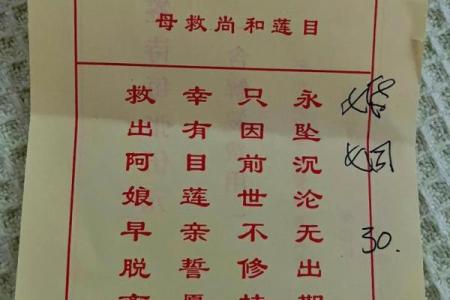 目莲和尚救母
婚姻
30.
永坠沉沦无出期
只因前世不修
幸有目莲亲誓愿
救出阿娘早脱